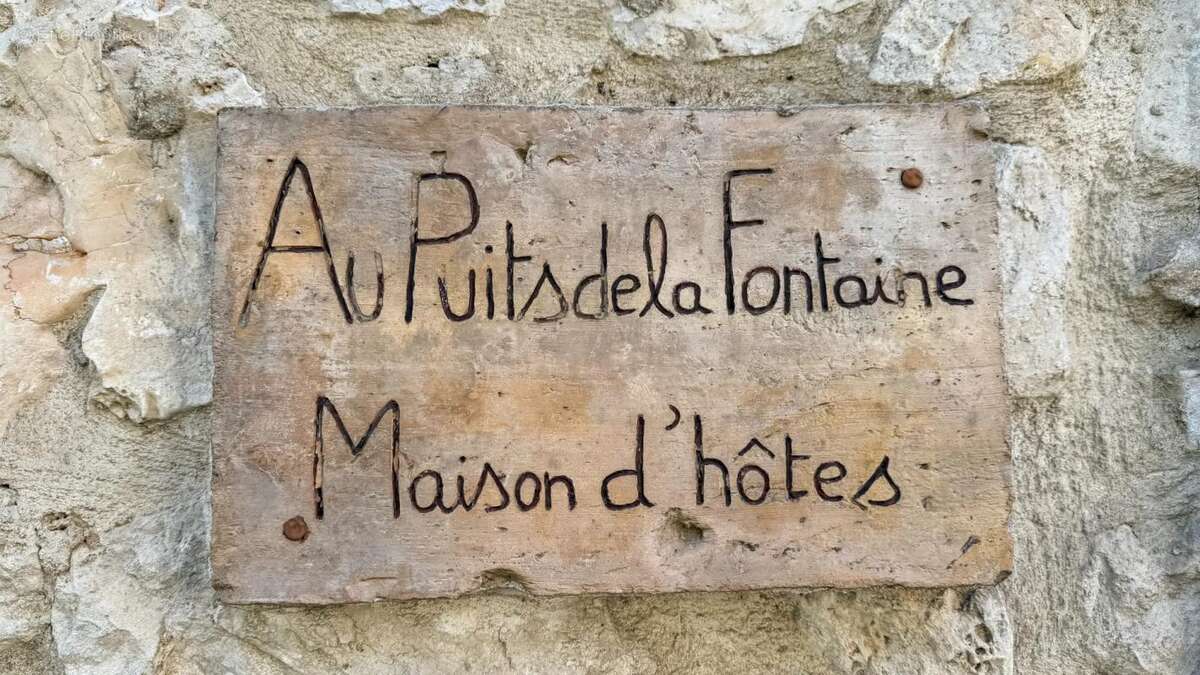 Au Puits de la Fontaine
Maison d'hôtes